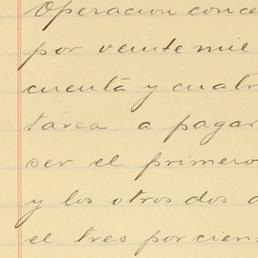 Operacion conce
por veinte mil
cuenta y cuatr
tárea a pagar
ser el primero
y los otros dos a
el tres por cien